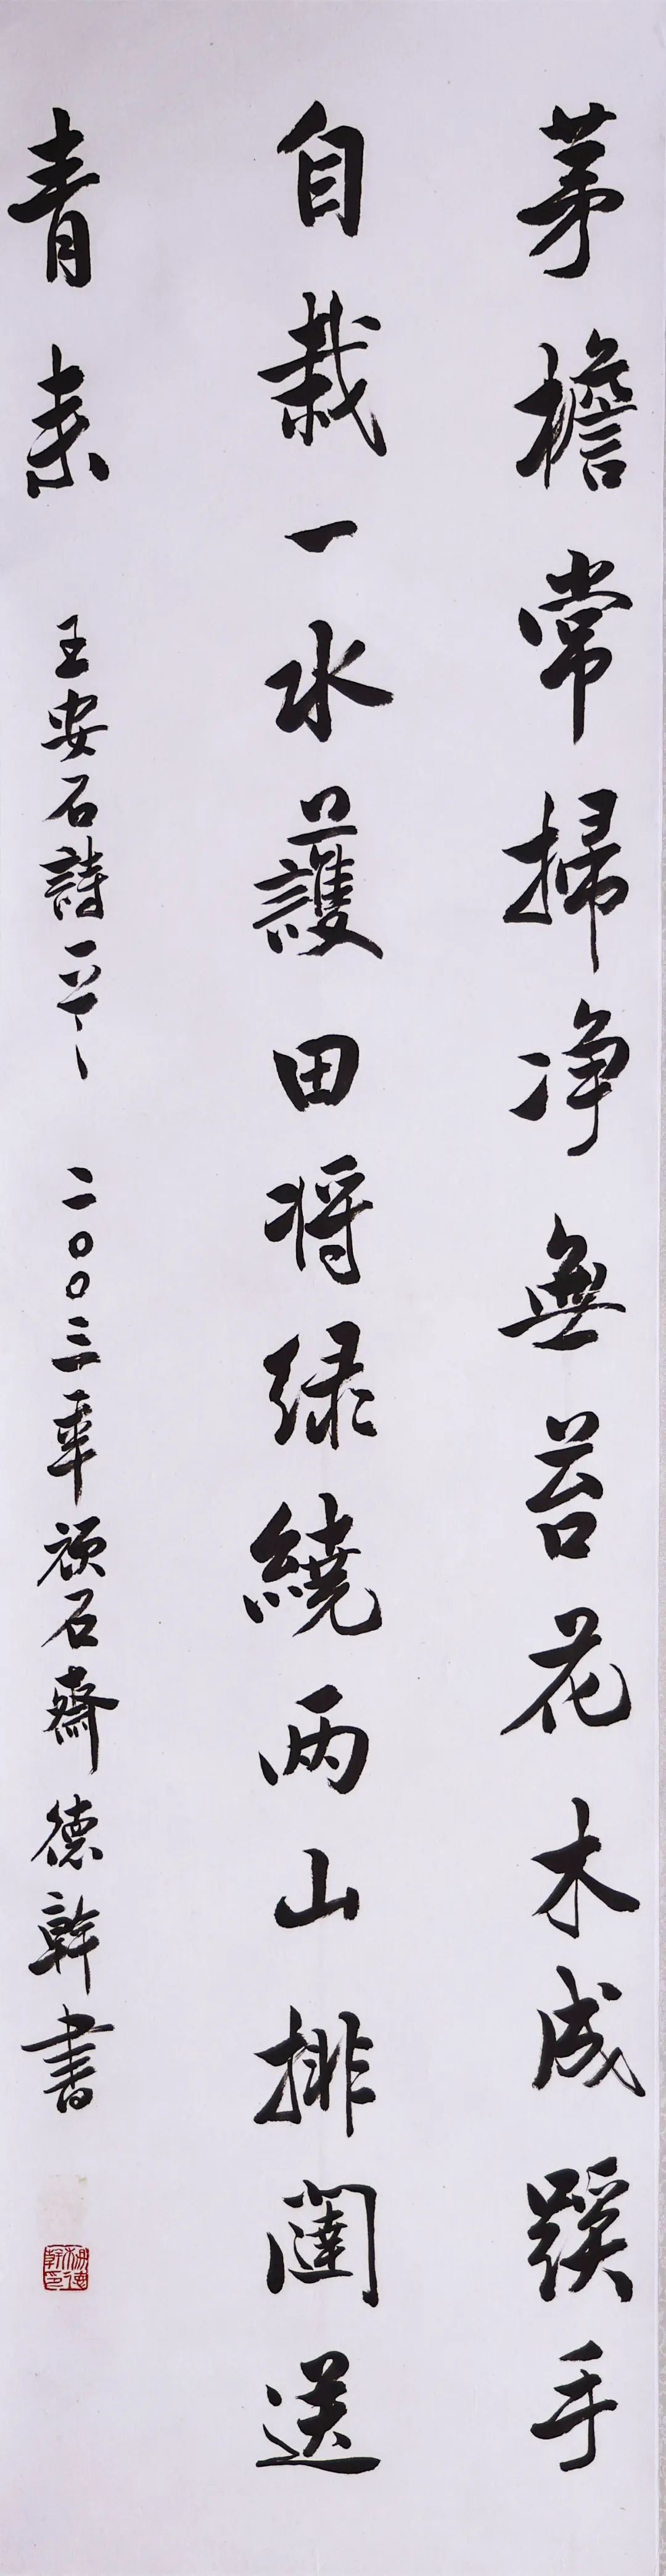 茅檐常掃净無苔花木成蹊手
自栽一水護田将绿繞两山排闥送
青来 王安石詩一首 二〇〇三年 頑石齋 德幹書